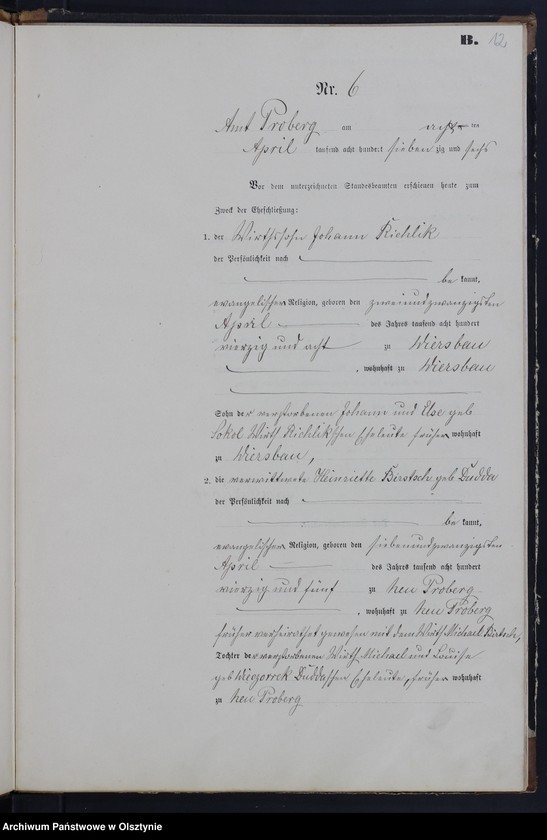 B. 12
Nr. 6
Amt Proberg am achten
April tausend acht hundert siebenzig und sechs
Vor dem unterzeichneten Standesbeamten erschienen heute zum
Zweck der Eheschließung:
1. der Wirthssohn Johann Richlik
der Persönlichkeit nach
bekannt,
evangelischer Religion, geboren den zweiundzwanzigsten
April des Jahres tausend acht hundert
vierzig und acht zu Wiersbau
, wohnhaft zu Wiersbau
Sohn der verstorbenen Johann und Else geb
Sokol Wirth Richlikschen Eheleute früher wohnhaft
zu Wiersbau,
2. die verwittwete Heinriette geb Dudda
der Persönlichkeit nach
bekannt,
evangelischer Religion, geboren den siebenundzwanzigsten
April des Jahres tausend acht hundert
vierzig und fünf zu neu Proberg
, wohnhaft zu neu Proberg
früher verheirathet gewesen mit dem Wirth Michael
Tochter der verstorbenen Wirth Michael und Louise
geb Duddaschen Eheleute, früher wohnhaft
zu neu Proberg
Archiwum Państwowe w Olsztynie